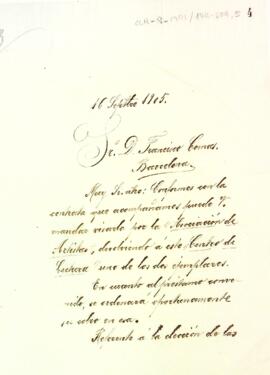 4
16 Sepbre 1905.
Sr. D. Francisco Comas.
Barcelona.
Muy Sr. ntro: Conformes con la
contrata que acompañamos puede V.
mandar visarlo por la Asociación de
Artistas, devolviendo a este Centro de
Lectura uno de los dos ejemplares.
En cuanto al préstamo conve-
nido, se ordenará oportunamente
su cobro en esa.
Referente á la elección de las